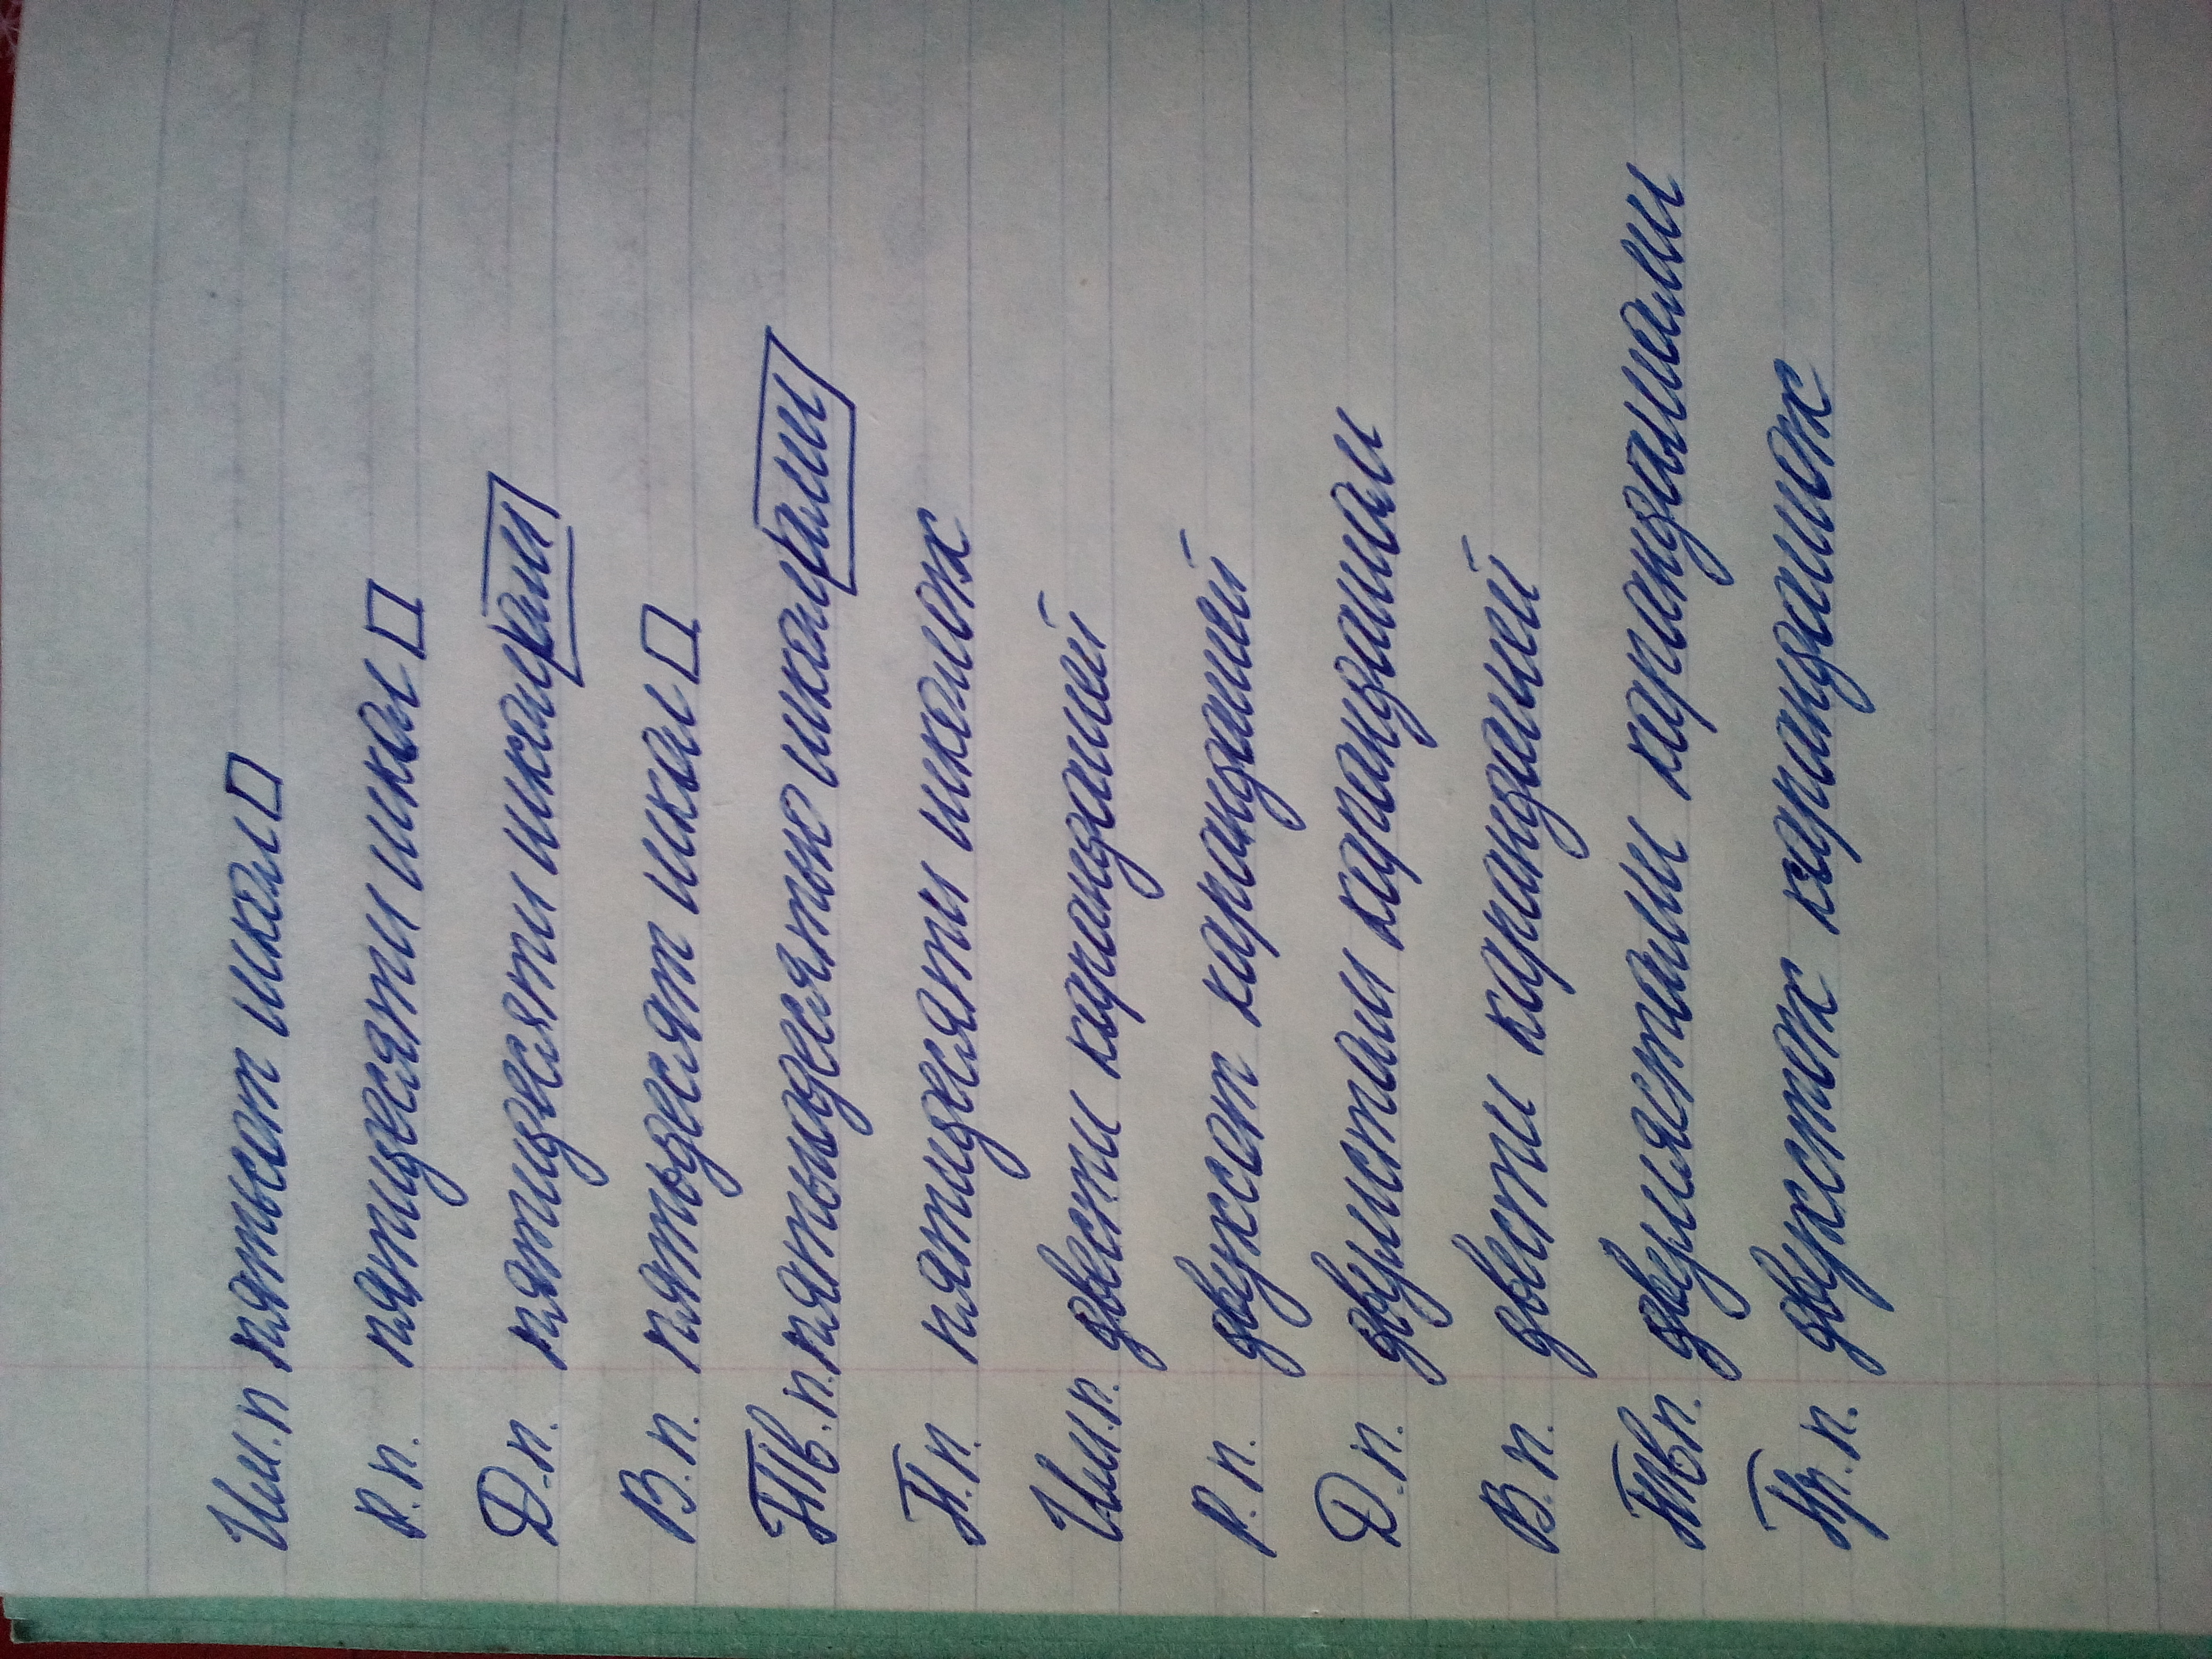 Им.п пятьсот шкал
Р.п. пятидесяти шкал
Д.п. пятидесяти шкалам
В.п. пятьдесят шкал
Тв.п. пятьюдесятью шкалами
П.п. пятидесяти шкалах
Им.п. двести карандашей
Р.п. двухсот карандашей
Д.п. двумстам карандашам
В.п. двести карандашей
Твп. двумястами карандашами
Пр.п. двухстах карандашах